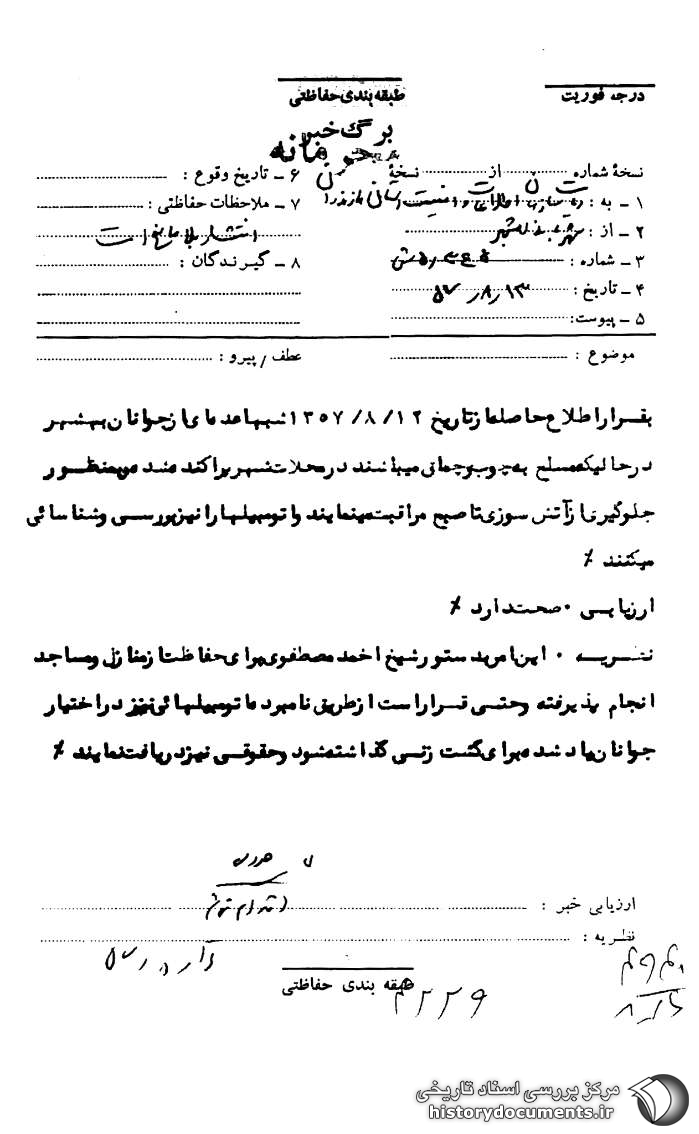 درجه فوریت
طبقه بندی حفاظتی
برگ خبر
محرمانه
نسخهٔ شماره از نسخهٔ
۶ ـ تاریخ وقوع :
۱ ـ به : ریاست سازمان اطلاعات و امنیت استان مازندران
۷ ـ ملاحظات حفاظتی :
۲ ـ از : بهشهر
انتشار بلامانع است
۳ ـ شماره :
۸ ـ گیرندگان :
۴ ـ تاریخ : ۱۳ر۸ر۵۷
۵ ـ پیوست:
موضوع :
عطف / پیرو :
بقرار اطلاع حاصله از تاریخ ۱۳۵۷/۸/۱۲ شبها عده ای از جوانان بهشهر
در حالیکه مسلح به چوب و چماق میباشند در محلات شهر پراکنده شده و بمنظور
جلوگیری از آتش سوزی تا صبح مراقبت مینمایند و اتومبیلها را نیز بررسی و شناسائی
میکنند ٪
ارزیابی ۰ صحت دارد ٪
نظریه ۰ این امر بدستور شیخ احمد مصطفوی برای حفاظت از منازل و مساجد
انجام پذیرفته و حتی قرار است از طریق نامبرده اتومبیلهائی نیز در اختیار
جوانان یاد شده برای گشت زنی گذاشته شود و حقوقی نیز دریافت نمایند ٪
ارزیابی خبر :
نظریه :
طبقه بندی حفاظتی
۴۲۲۶
مرکز بررسی اسناد تاریخی
historydocuments.ir